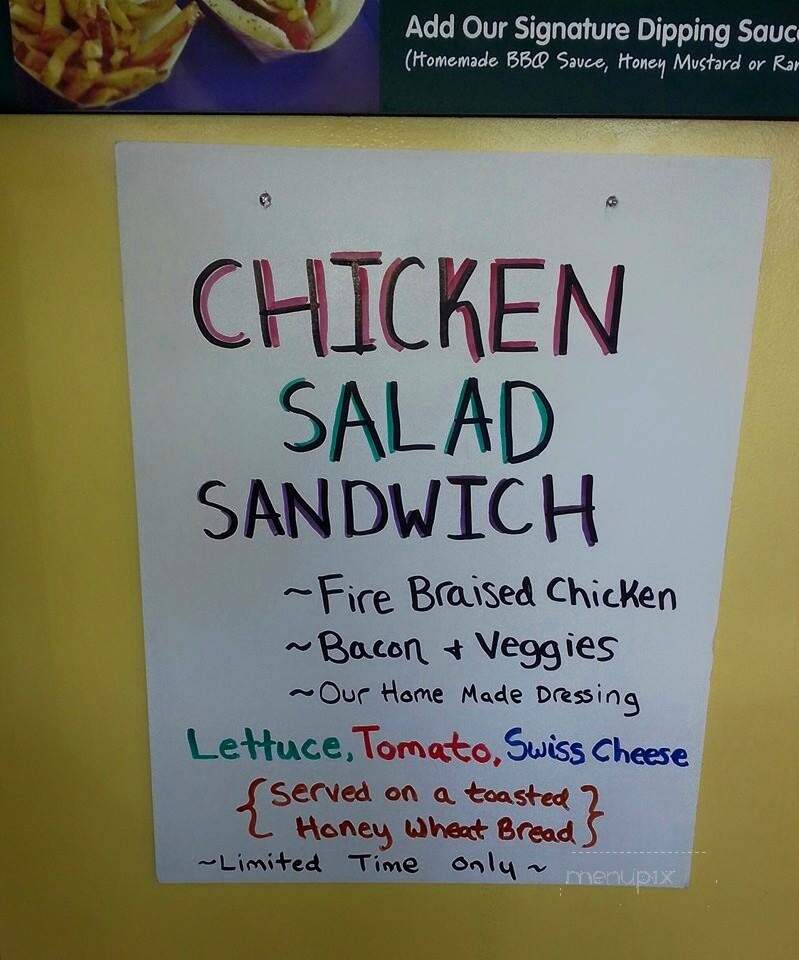 Add Our Signature Dipping
(Homemade BBQ Sauce, Honey Mustard or
CHICKEN
SALAD
SANDWICH
~Fire Braised Chicken
~Bacon + Veggies
~Our Home Made Dressing
Lettuce, Tomato, Swiss Cheese
{Served on a toasted
Honey Wheat Bread}
~Limited Time only~
menupix